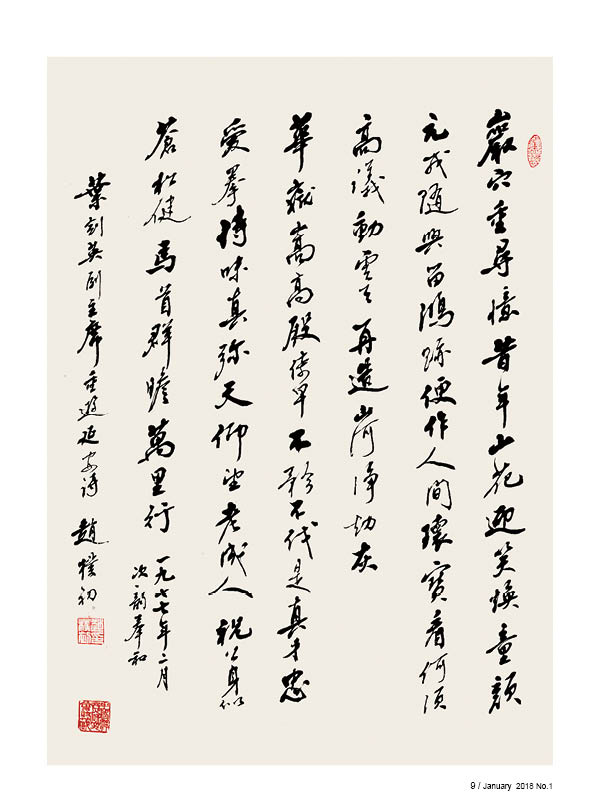 巖穴重尋憶昔年山花迎笑煥童顏
元戎隨興留鴻跡便作人間瓌寶看何須
高議動雲再造山河淨劫灰
華嶽嵩高殿不矜不伐是真才忠
愛拳味真彌天仰望老成人祝公身似
蒼松健馬首群瞻萬里行
一九七七年二月
次韵奉和
葉劍英副主席重遊延安詩 趙樸初
9 / January 2018 No.1